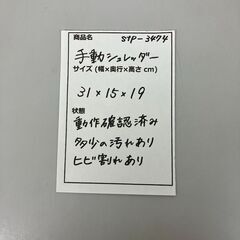 商品名 STP-3474
手動シュレッダー
サイズ (幅×奥行×高さ cm)
31×15×19
状態
動作確認済み
多少の汚れあり
ヒビ割れあり